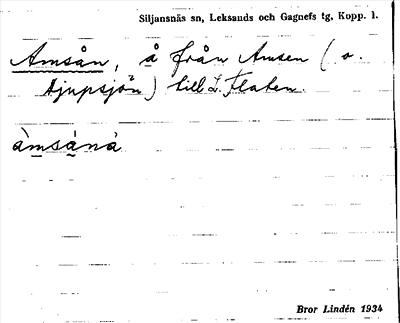 Siljansnäs sn, Leksands och Gagnefs tg, Kopp. l.
Amsån, å från Amsen (o.
Djupsjön) till L. Flaten.
àmsā̀nà
Bror Lindén 1934